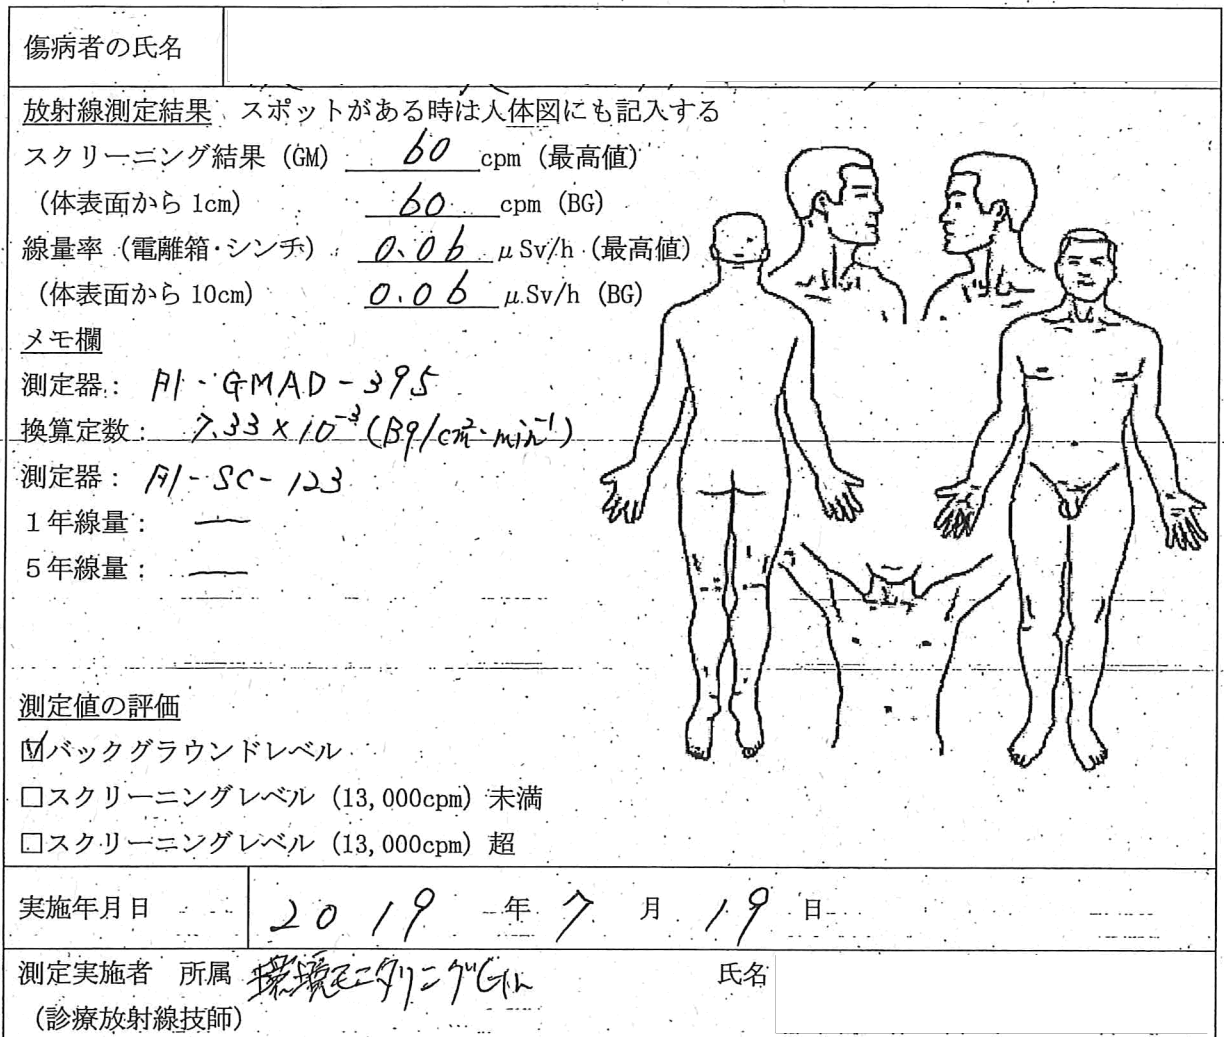 傷病者の氏名
放射線測定結果 スポットがある時は人体図にも記入する
スクリーニング結果 (GM) 60 cpm (最高値)
(体表面から 1cm) 60 cpm (BG)
線量率 (電離箱・シンチ) 0.06 μSv/h (最高値)
(体表面から 10cm) 0.06 μSv/h (BG)
メモ欄
測定器: A1-GMAD-395
換算定数: 7.33×10⁻³(Bq/cm²・min⁻¹)
測定器: A1-SC-123
1年線量: —
5年線量: —
測定値の評価
☑バックグラウンドレベル
□スクリーニングレベル (13,000cpm) 未満
□スクリーニングレベル (13,000cpm) 超
実施年月日 2019 年 7 月 19 日
測定実施者 所属 環境モニタリングGrん 氏名
(診療放射線技師)